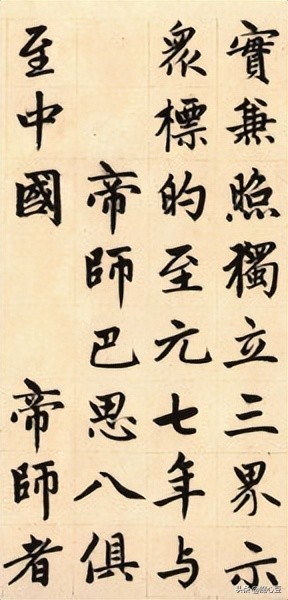 實兼照獨立三界示
眾標的至元七年与
帝師巴思八俱
至中國 帝師者
头条@幽心豆